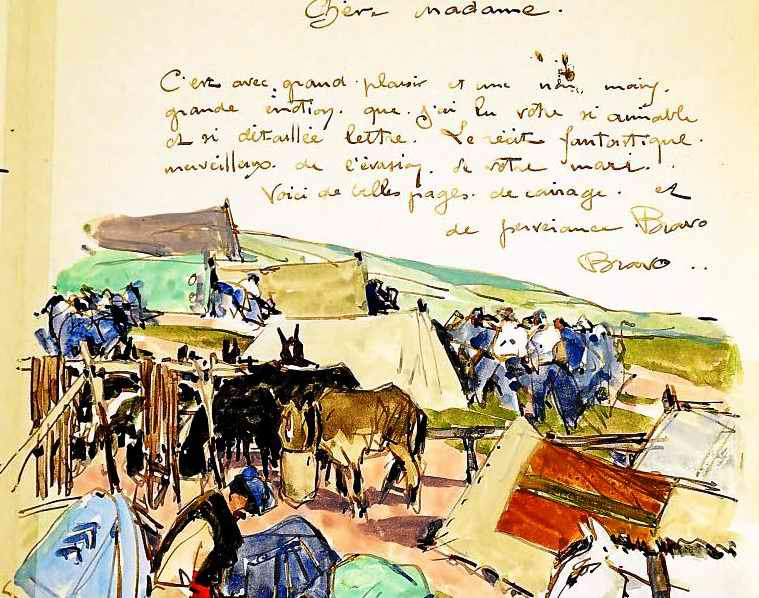 Chère Madame.
C'est avec grand plaisir et une non moins
grande émotion que j'ai lu votre si aimable
et si détaillée lettre. Le récit fantastique.
merveilleux. de l'évasion. de votre mari.
Voici de belles pages. de courage. et
de Bravo
Bravo..